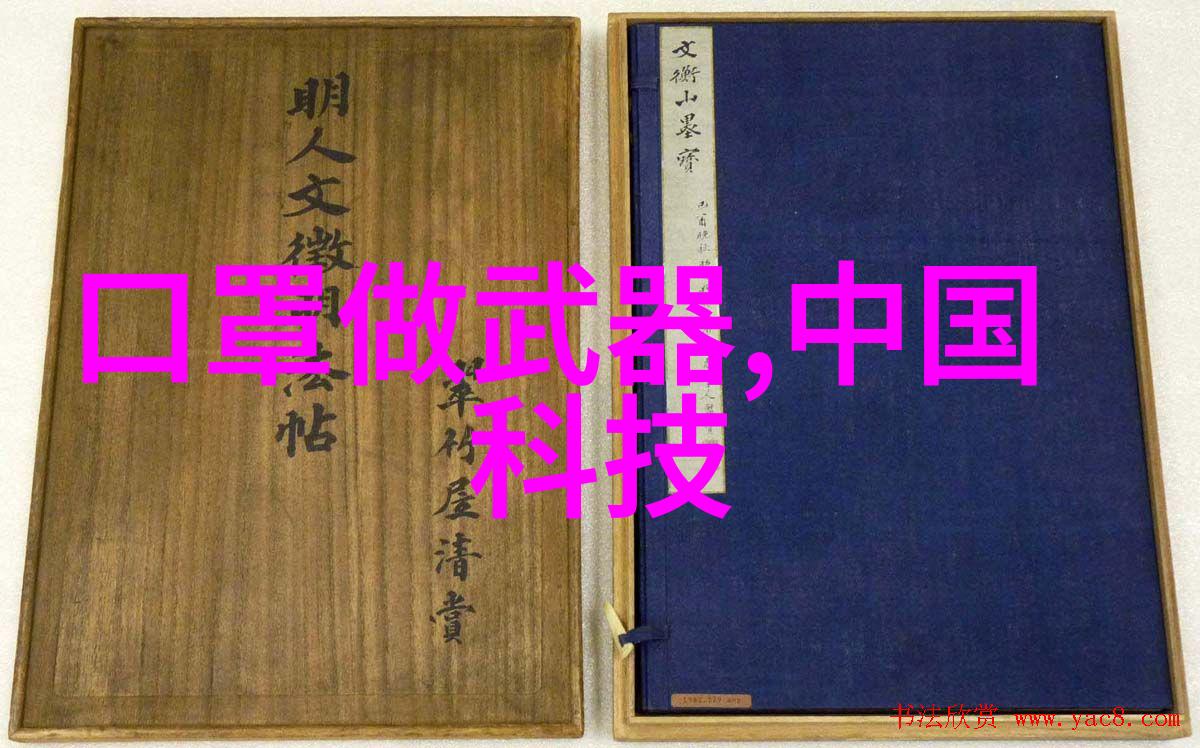 明人文徵明法帖
翠竹屋清賞
文衡山墨寶
口罩做武器,中国
科技
书法欣赏 www.yac8.com